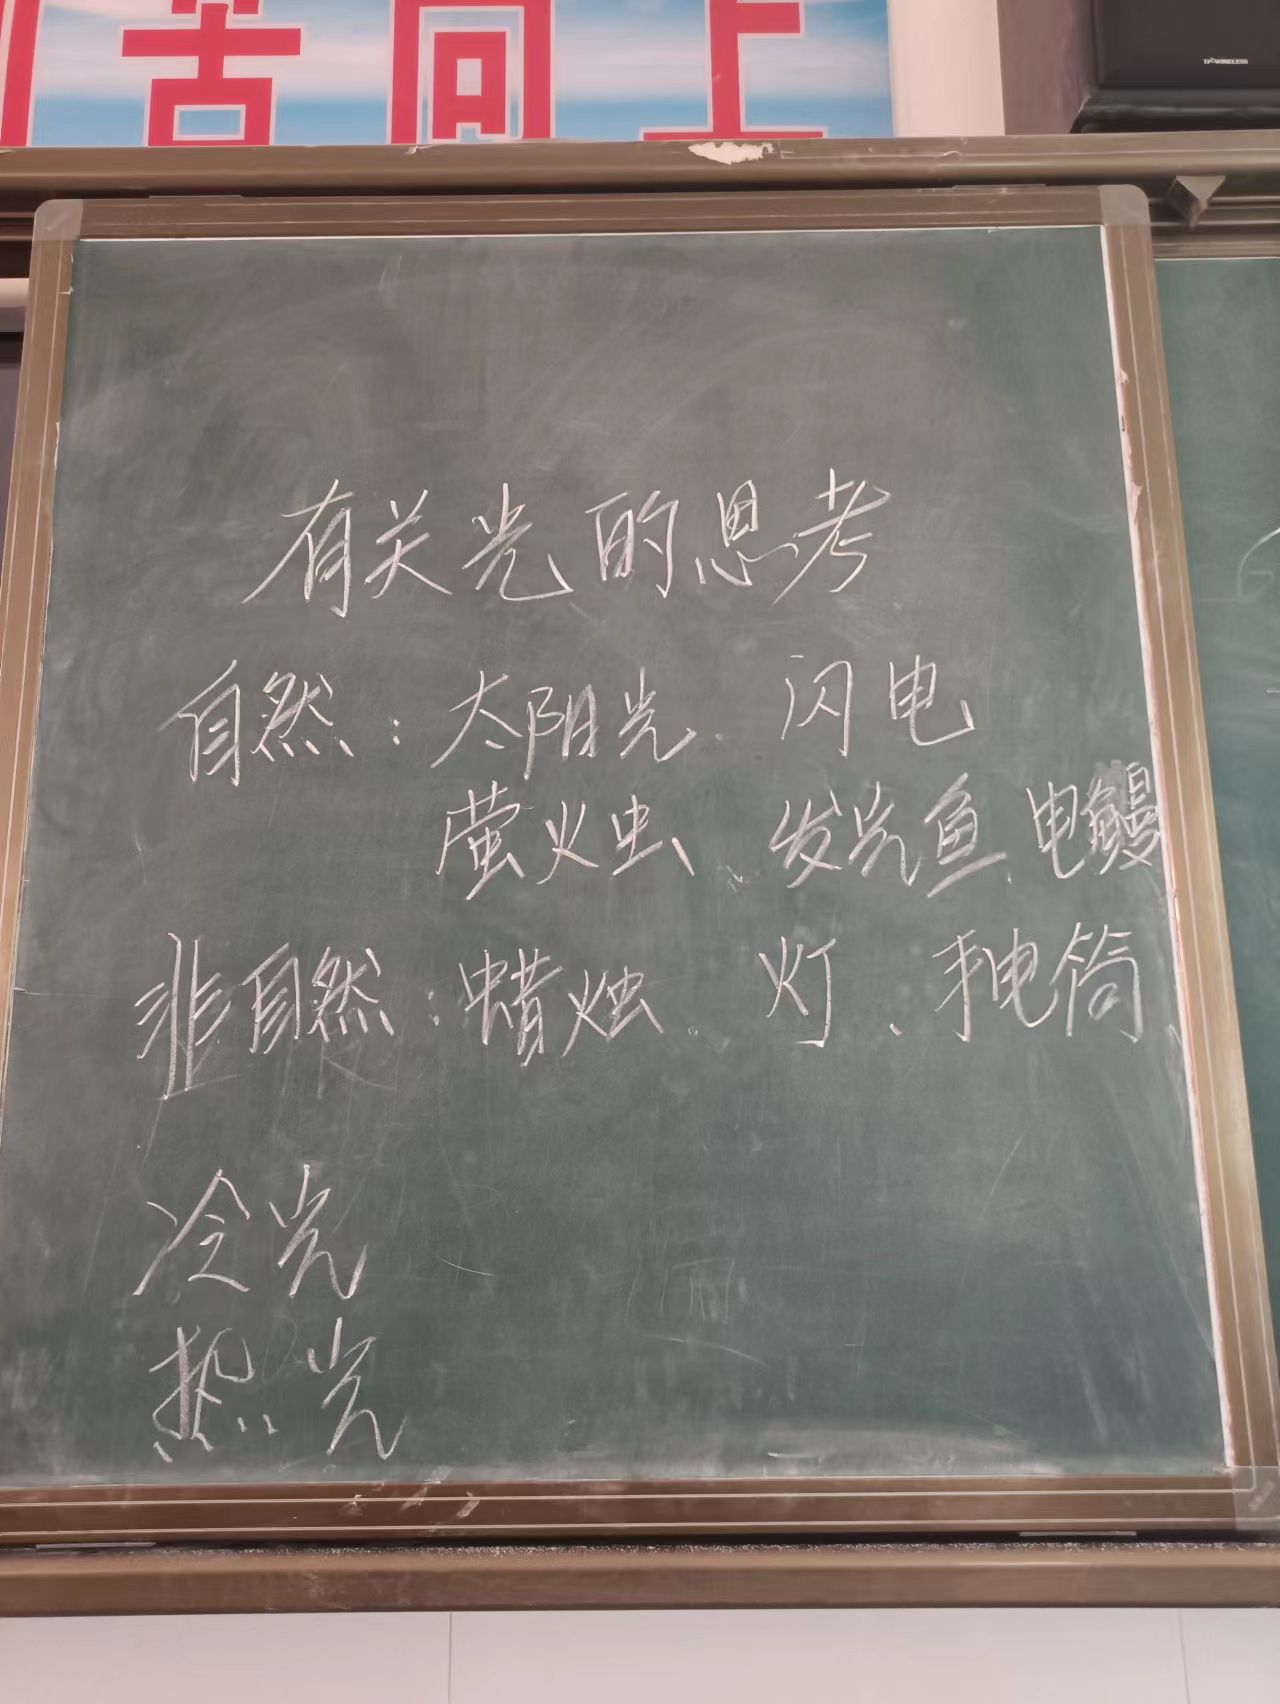 苦向上
TPWIRELESS
有关光的思考
自然：太阳光、闪电
萤火虫、发光鱼、电鳗
非自然：蜡烛、灯、手电筒
冷光
热光